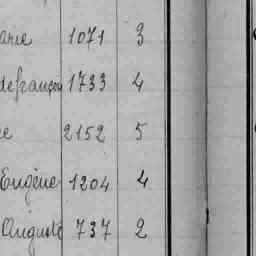 arie 1071 3
defrançou 1733 4
e 2152 5
Eugène 1204 4
Auguste 737 2